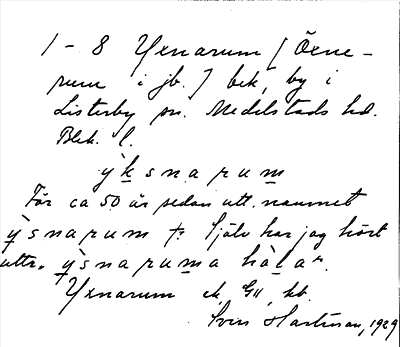 1-8 Yxnarum [Öxne-
rum i jb.] bek, by i
Listerby sn. Medelstads hd.
Blek. l.
ỳk̲snarum̲
För ca 50 år sedan utt. namnet
ỳ̲snarum Själv har jag hört
uttr. ỳ̲snarum̲a hàl̲ar.
Yxnarum ek, GII, kb.
Sven Hartman, 1929